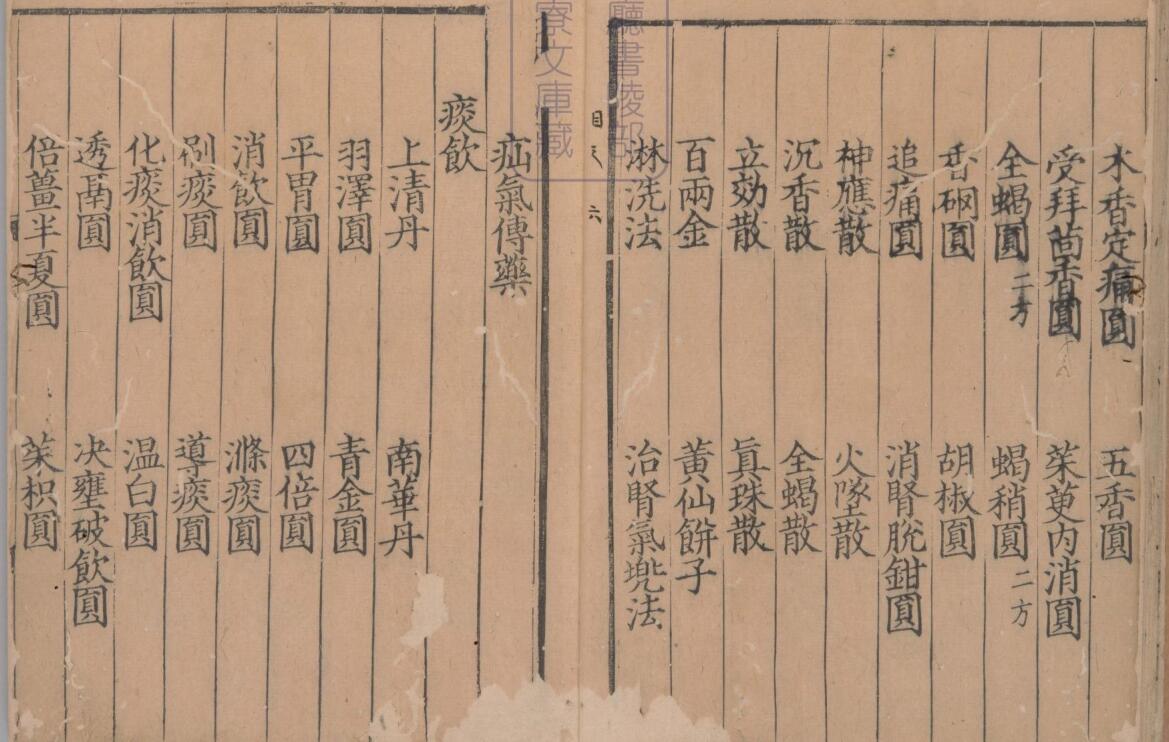 木香定痛圓　五香圓
受拜茴香圓　茱萸内消圓
全蝎圓二方　蝎稍圓二方
香硇圓　胡椒圓
追痛圓　消腎脫鉗圓
神應散　火墜散
沉香散　全蝎散
立効散　眞珠散
百兩金　黃仙餅子
淋洗法　治腎氣㙈法
六
疝氣傳藥
痰飲
上清丹　南華丹
羽澤圓　青金圓
平胃圓　四倍圓
消飲圓　滌痰圓
别痰圓　導痰圓
化痰消飲圓　温白圓
透鬲圓　决壅破飲圓
倍薑半夏圓　茱枳圓
廳書陵部
寮文庫藏